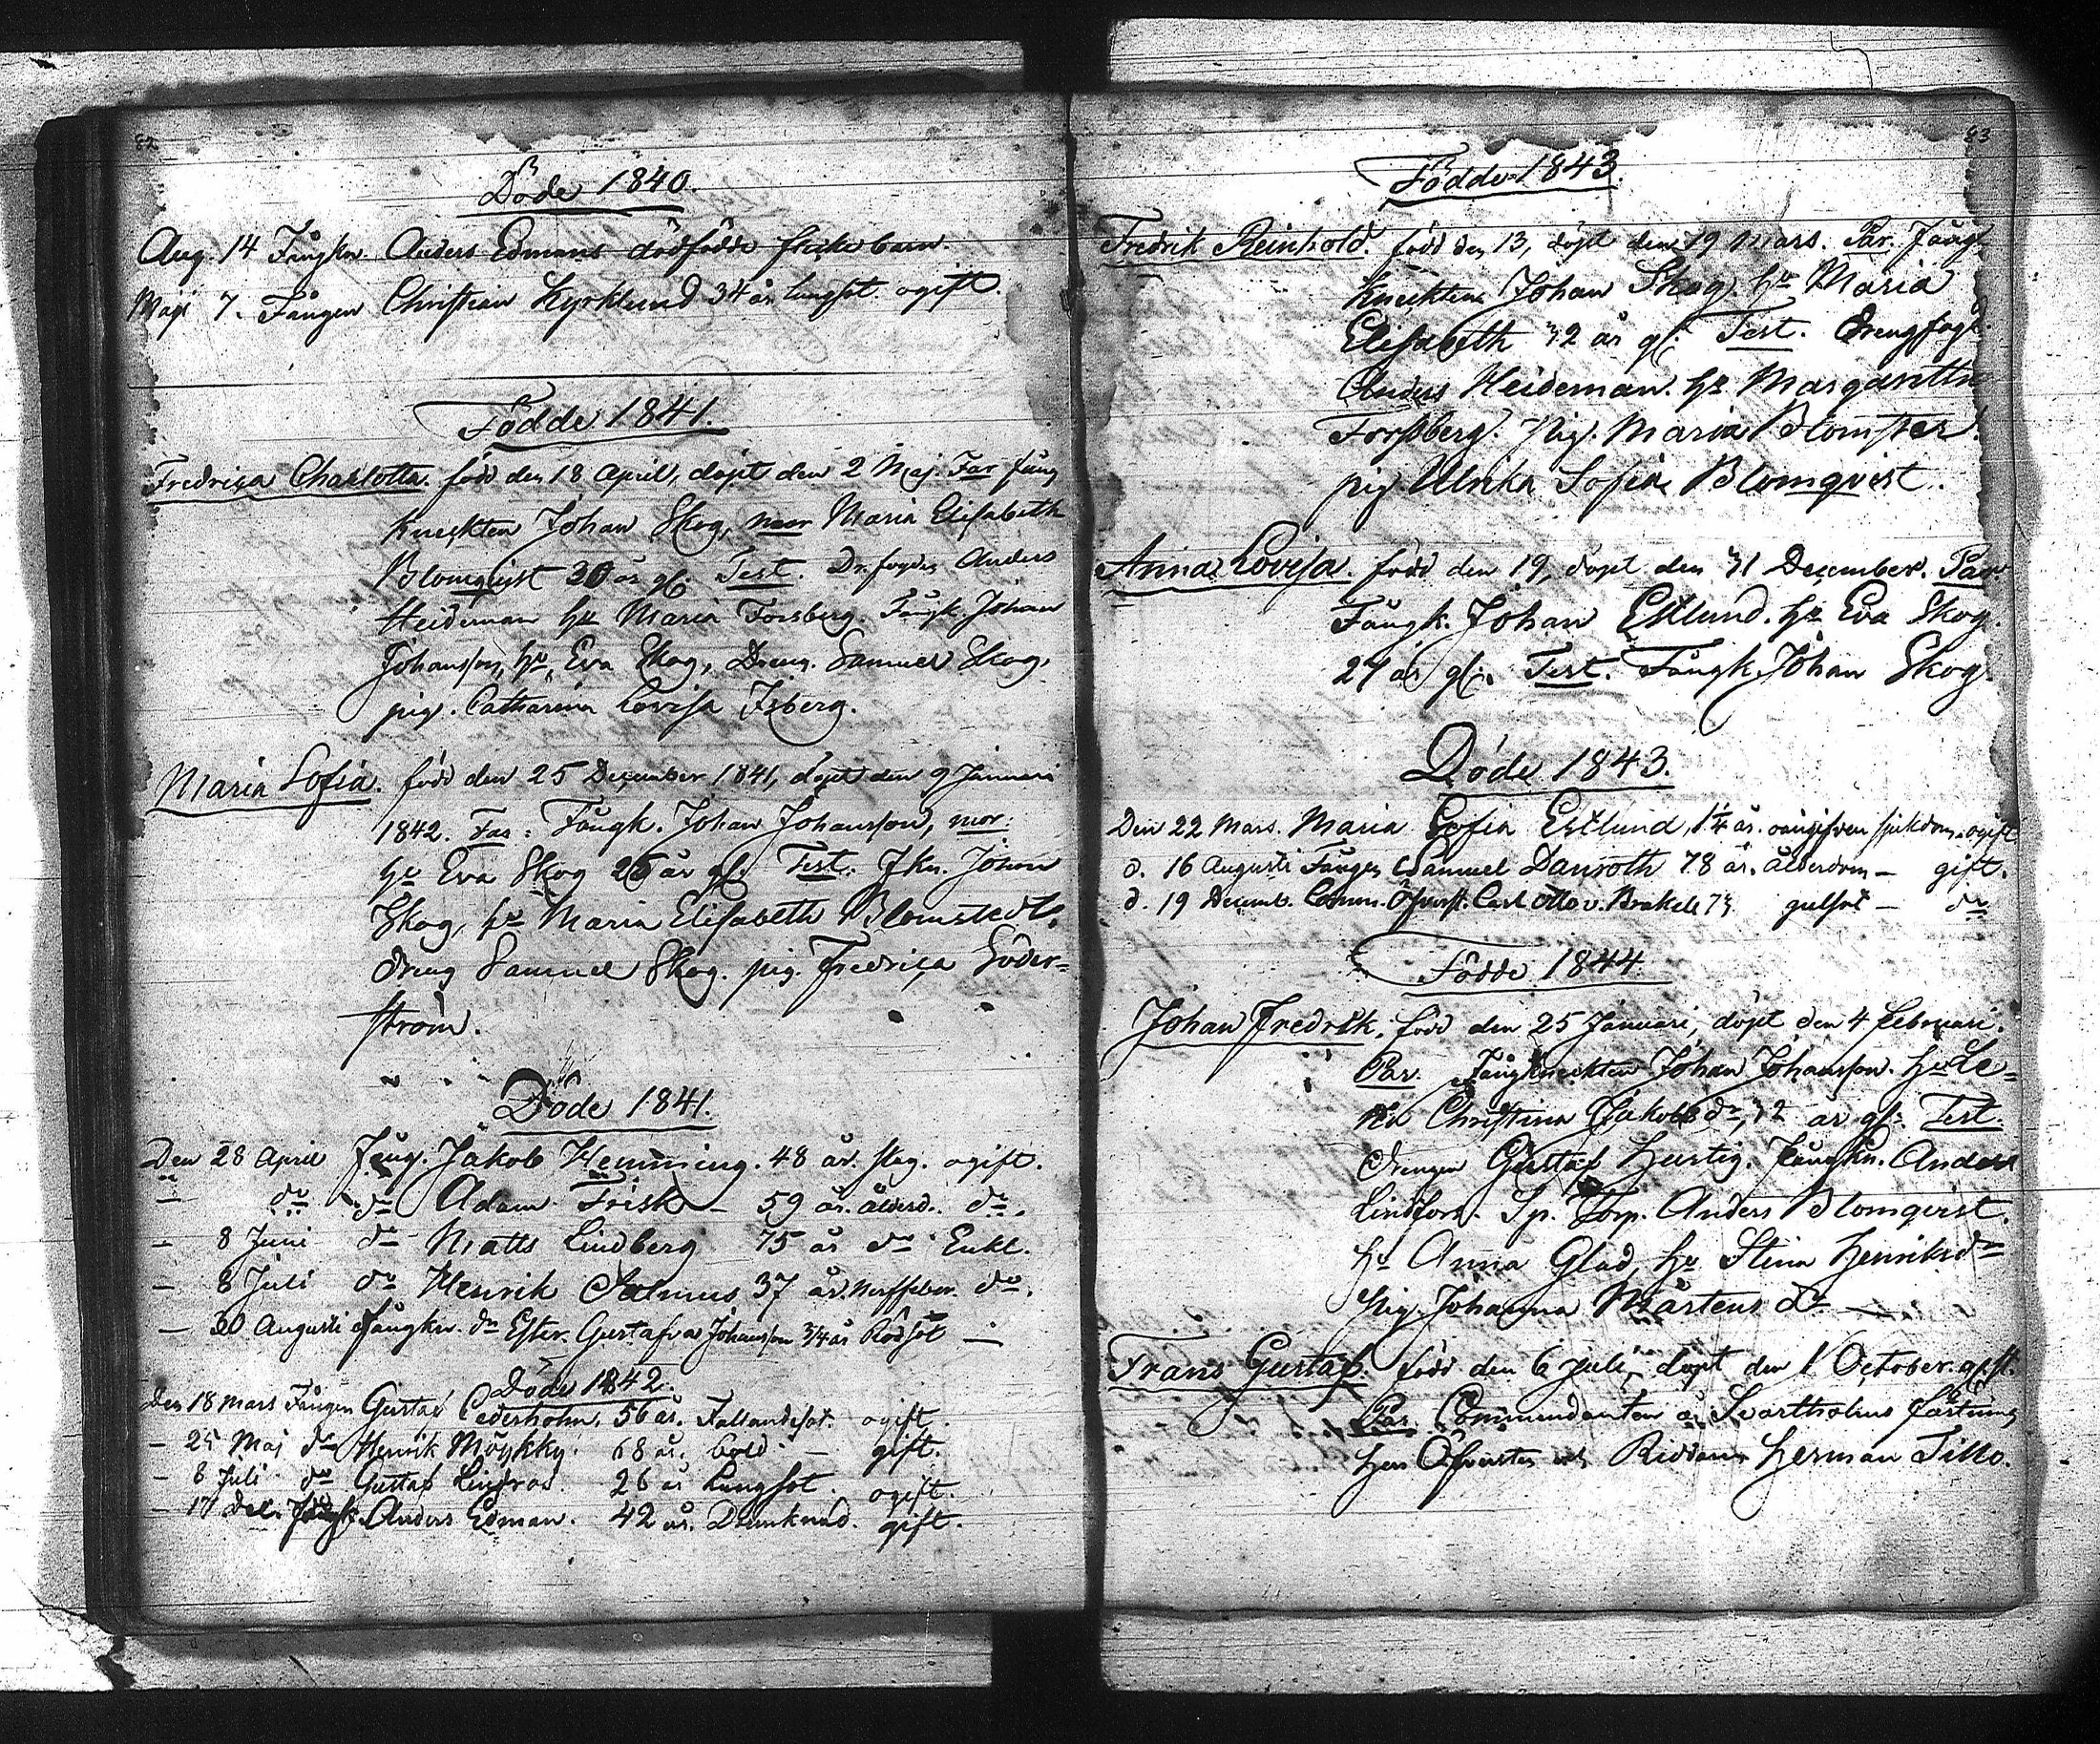 82
Döde 1840.
Aug. 14 Fångkn. Anders Edmans dödfödda flickebarn.
Maji 7. Fången Christian Kyrklund 34 år lungsot. ogift.
Födde 1841.
Fredrica Charlotta. född den 18 April, döpt den 2 Maj. Far fång
knekten Johan Skog, mor Maria Elisabeth
Blomqvist 30 år gl. Test. Dr. fogden Anders
Heideman hu Maria Forsberg. Fångk. Johan
Johansson, hu Eva Skog, Dreng. Samuel Skog.
pig. Catharina Lovisa Isberg.
Maria Sofia. född den 25 December 1841, döpt den 9 Januari
1842. Far: Fångk. Johan Johansson, mor:
hu Eva Skog 25 år gl. Test. Fkn. Johan
Skog, hu Maria Elisabeth Blomstedt.
dreng Samuel Skog. pig. Fredrica Söder=
ström.
Döde 1841.
Den 28 April Fång. Jakob Hemming. 48 år. slag. ogift.
— do do Adam Frisk — 59 år. ålderd. do.
— 8 Juni do Matts Lindberg 75 år do Enkl.
— 8 Juli do Henrik Salmus 37 år. do.
— 30 Augusti Fångkn. dr Ester Gustafva Johansson 3/4 år Rödsot —
Döde 1842.
Den 18 Mars Fången Gustaf Cederholm, 56 år. Fallandesot. ogift.
— 25 Maj do Henrik Möykky. 68 år. — gift.
— 8 Juli do Gustaf Lindros. 26 år Lungsot. ogift.
— 17 Dec. Fångk. Anders Edman. 42 år. Drunknad. gift.
83
Födde 1843.
Fredrik Reinhold. född den 13, döpt den 19 Mars. Par. Fång
knekten Johan Skog. hu Maria
Elisabeth 32 år gl. Test. Drengfogd.
Anders Heideman. hu Margaretha
Forssberg. Pig. Maria Blomster.
pig Ulrika Sofia Blomqvist.
Anna Lovisa. född den 19, döpt den 31 December. Par
Fångk. Johan Estlund. hu Eva Skog.
27 år gl. Test. Fångk. Johan Skog.
Döde 1843.
Den 22 Mars. Maria Sofia Estlund, 1 1/4 år. oangifven sjukdom. ogift
d. 16 Augusti Fången Samuel Danroth 78 år. Ålderdom — gift.
d. 19 Decemb. Comm. Öfverst. Carl Otto v. Brakel 73 gulsot — do
Födde 1844.
Johan Fredrik. född den 25 Januari, döpt den 4 Februari.
Par. Fångknekten Johan Johansson. hu Le=
na Christina Jakobsdr, 32 år gl. Test.
drengen Gustaf Hurtig. Fångkn. Anders
Lindfors. Sp. Torp. Anders Blomqvist.
hu Anna Glad, hu Stina Henriksdr
Pig. Johanna Mårtens dr —
Frans Gustaf. född den 6 Juli, döpt den 1 October. gift.
Par. Commendanten å Svartholms fästning
Herr Öfversten och Riddaren Herman Tillo.